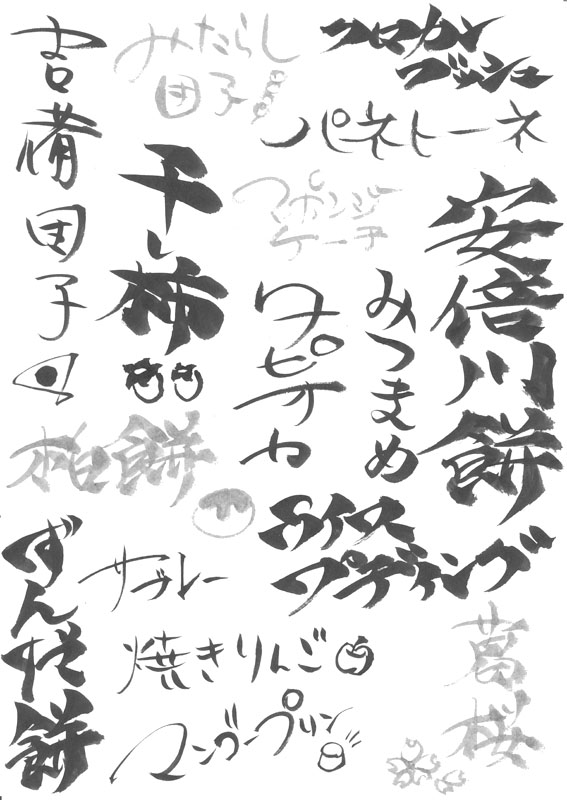 吉備団子
みたらし
団子
クロカン
ブッシュ
パネトーネ
干し柿
スポンジ
ケーキ
安倍川餅
みつまめ
タピオカ
柏餅
ライス
プディング
ずんだ餅
サブレー
焼きりんご
マンゴープリン
葛桜